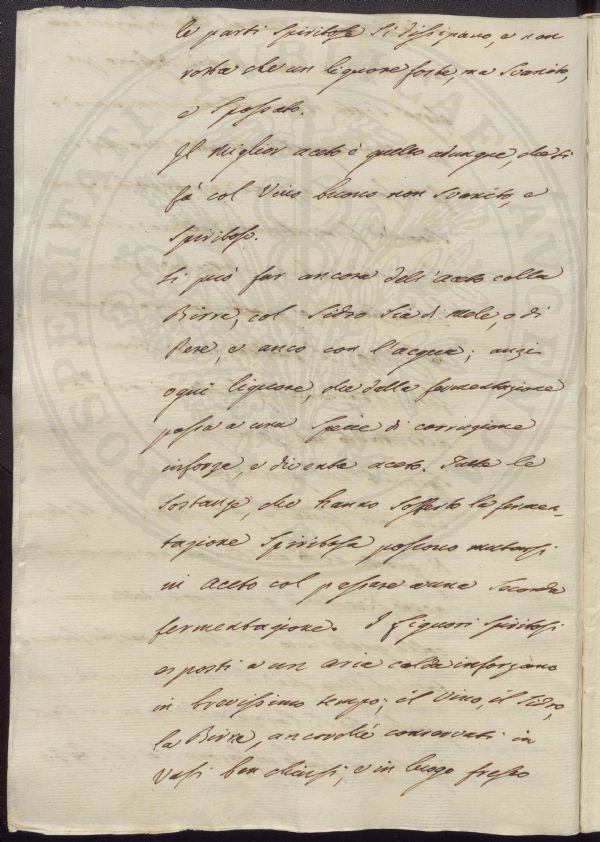 le parti spiritose si dissipano, e non
resta che un liquore forte, ma svanito,
e spossato.
Il miglior aceto è quello adunque, che si
fà col Vino buono non svanito, e
spiritoso.
Si può far ancora dell'Aceto colla
Birra, col Sidro sia di mele, o di
Pere, e anco con l'acqua; anzi
ogni liquore, che dalla fermentazione
passa a una specie di corruzione
inforza, e diventa aceto. Tutte le
sostanze, che hanno sofferto la fermen-
tazione spiritosa possono mutarsi
in Aceto col passare a una seconda
fermentazione. I Liquori spiritosi
esposti a un aria calda inforzano
in brevissimo tempo; il Vino, il Sidro,
la Birra, ancorchè conservati in
Vasi ben chiusi, e in luogo fresco
PROSPERITATI PUBLICAE